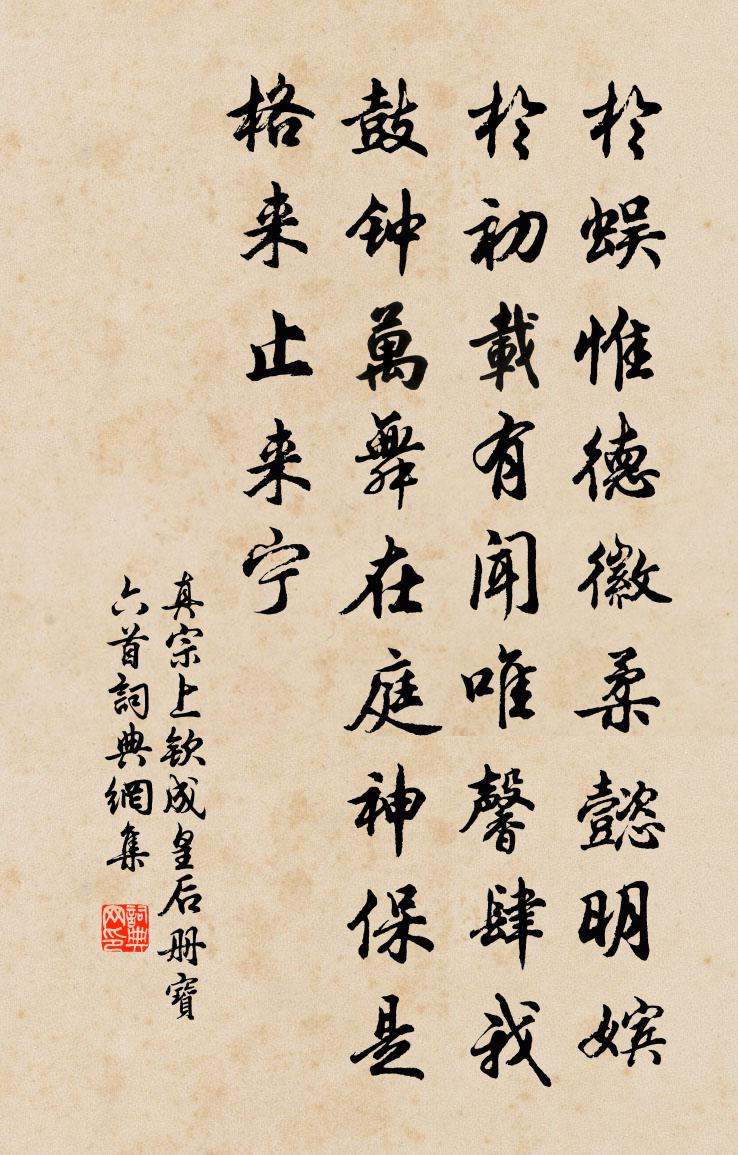 於蜈惟德徽柔懿明嫔
於初載有闻唯馨肆我
鼓钟萬舞在庭神保是
格来止来宁
真宗上钦成皇后册寶
六首詞典網集
詞典
网印